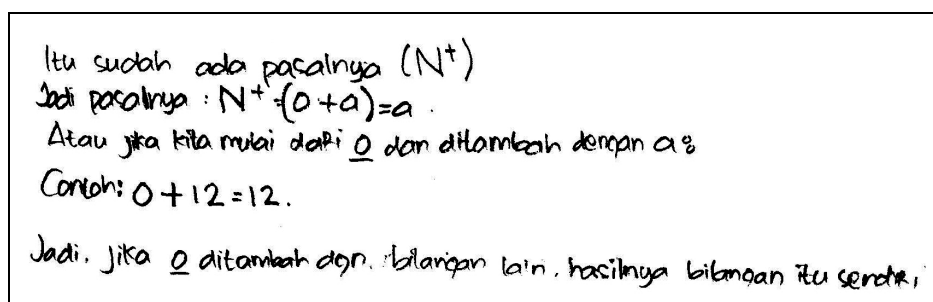 Itu sudah ada pasalnya (N⁺)
Jadi pasalnya : N⁺ = (0 + a) = a.
Atau jika kita mulai dari 0 dan ditambah dengan a :
Contoh : 0 + 12 = 12.
Jadi, jika 0 ditambah dgn. bilangan lain, hasilnya bilangan itu sendiri,